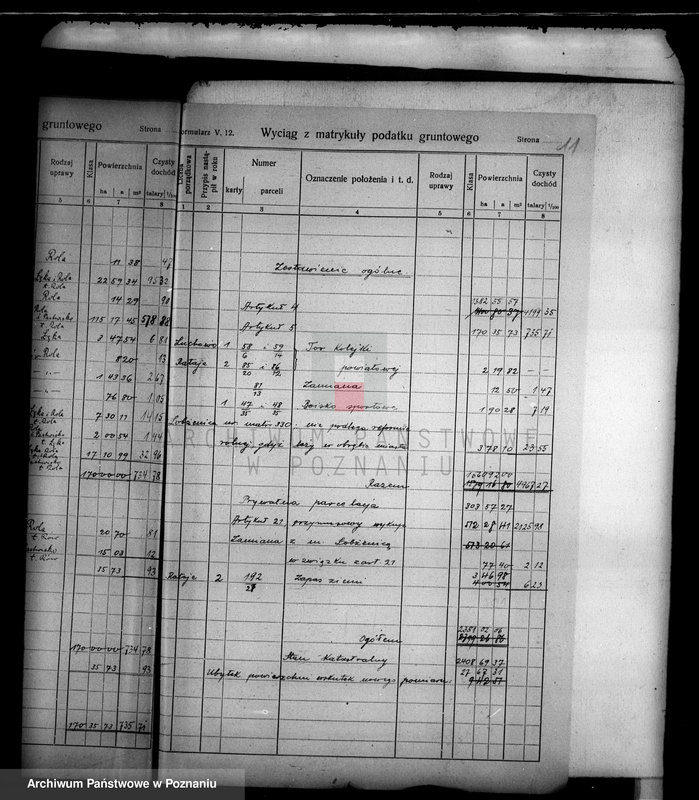 gruntowego Strona
Rodzaj uprawy Klasa Powierzchnia Czysty dochód
ha a m² talary 1/100
5 6 7 8
Rola 11 38 47
Łąka i Rola 22 59 34 95 32
Rola 14 29 98
Rola
115 17 45 578 88
Łąka 3 47 54 6 81
Rola 8 20 13
1 43 36 2 67
76 80 1 05
Łąka i Rola 7 30 17 14 15
2 00 54 1 44
17 10 99 32 96
170 00 00 734 78
Rola 20 70 81
15 03 12
35 73 93
170 00 00 734 78
35 73 93
170 35 73 735 71
ormularz V. 12. Wyciąg z matrykuły podatku gruntowego Strona 11
Liczba porządkowa Przypis nastąpił w roku Numer karty parceli Oznaczenie położenia i t. d. Rodzaj uprawy Klasa Powierzchnia Czysty dochód
ha a m² talary 1/100
1 2 3 4 5 6 7 8
Zestawienie ogólne.
1382 55 57
Artykuł 4 4199 35
Artykuł 5 170 35 73 735 71
Luchowo 1 58/6 i 59/14 Tor kolejki
Rataje 2 85/20 i 86/12 powiatowej 2 19 82
81/13 Zamiana 12 50 1 47
1 47/35 i 48/35 Boisko sportowe 1 90 28 7 19
Łobżenica nr. matr. 330 nie podlega reformie
rolnej gdyż leży w obrębie miasta 3 78 10 23 55
Razem 4967 27
Prywatna parcelacja 303 57 27
Artykuł 21 przymusowy wykup 512 28 41 2125 98
Zamiana z m. Łobżenicą
w związku z art. 21 77 40 2 12
3 46 98
Rataje 2 192/28 Zapas ziemi 6 23
2381 02 06
Ogółem
Stan katastralny 2408 69 37
27 67 31
Ubytek powierzchni wskutek nowego pomiaru
ARCHIWUM PAŃSTWOWE
W POZNANIU
Archiwum Państwowe w Poznaniu